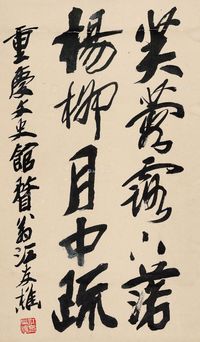 芙蓉露下落
楊柳月中疏
重慶文史館瞽翁江友樵